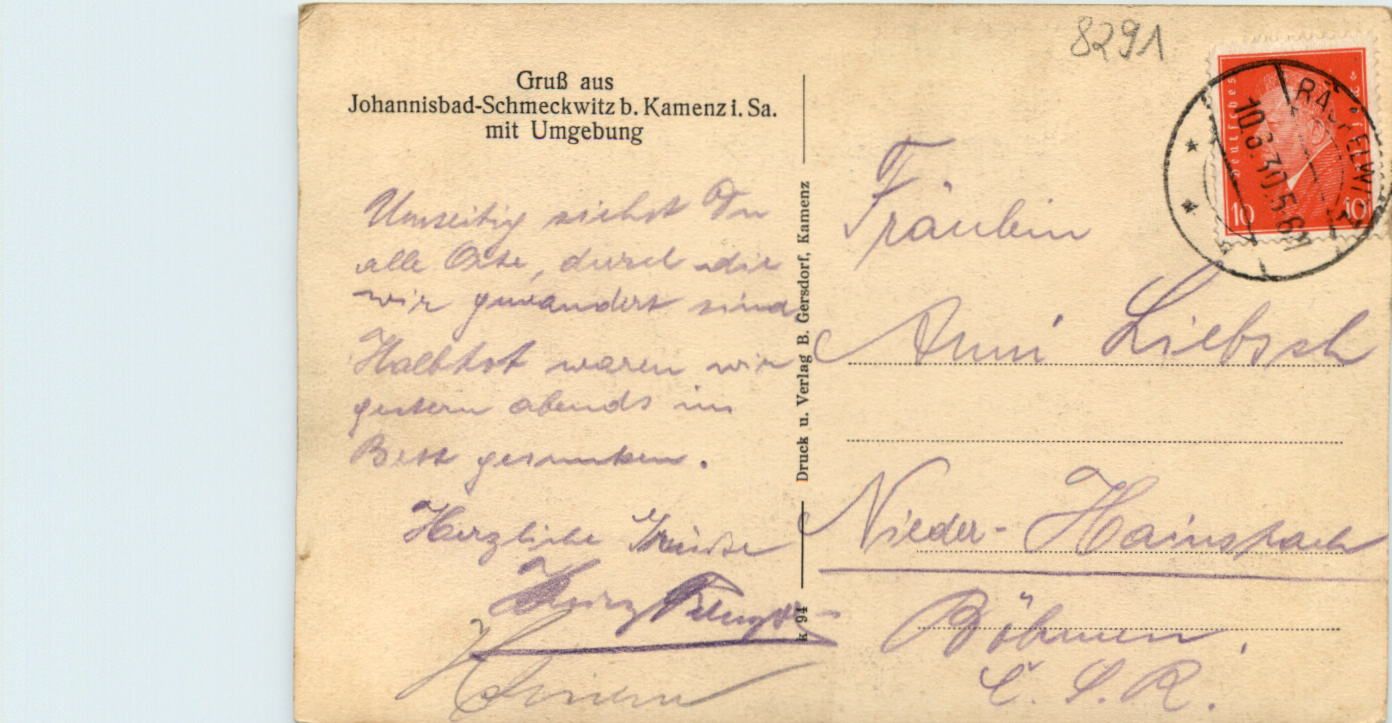 8291
Gruß aus
Johannisbad-Schmeckwitz b. Kamenz i. Sa.
mit Umgebung
Umseitig siehst Du
alle Orte, durch die
wir gewandert sind.
Halbtot waren wir
gestern abends ins
Bett gesunken.
Herzliche Grüße
Heinz
k 94
Druck u. Verlag B. Gersdorf, Kamenz
Deutsches
10 10
10.6.30.5-6N
Fräulein
Anni Liebsch
Nieder-Hainspach
Böhmen.
Č. S. R.